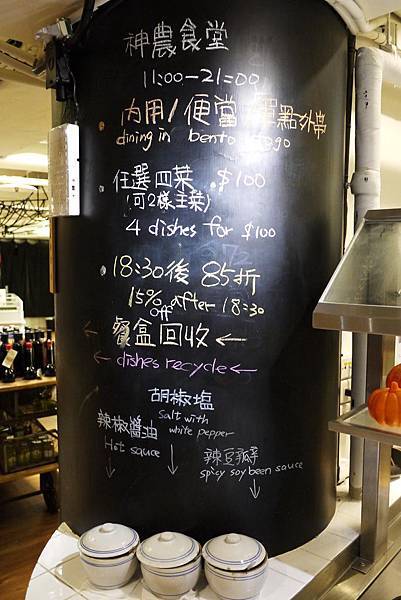 神農食堂
11:00-21:00
內用/便當/單點外帶
dining in bento togo
任選四菜 . $100
(可2樣主菜)
4 dishes for $100
18:30後 85折
15% off after 18:30
← 餐盒回收 ←
← dishes recycle ←
胡椒塩
salt with
white pepper
辣椒醬油
Hot sauce
辣豆瓣
spicy soybeen sauce